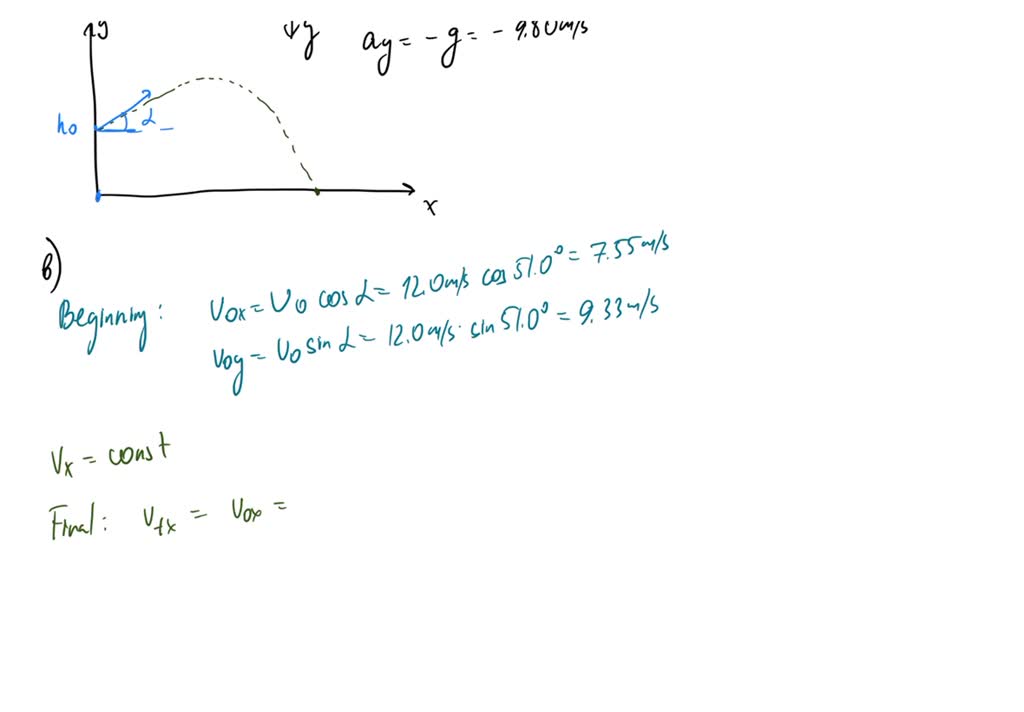 y
↓g ay = -g = - 9.80 m/s
h0 α
x
b)
Beginning: v0x = v0 cos α = 12.0 m/s cos 51.0° = 7.55 m/s
v0y = v0 sin α = 12.0 m/s · sin 51.0° = 9.33 m/s
Vx = const
Final: vfx = v0x =